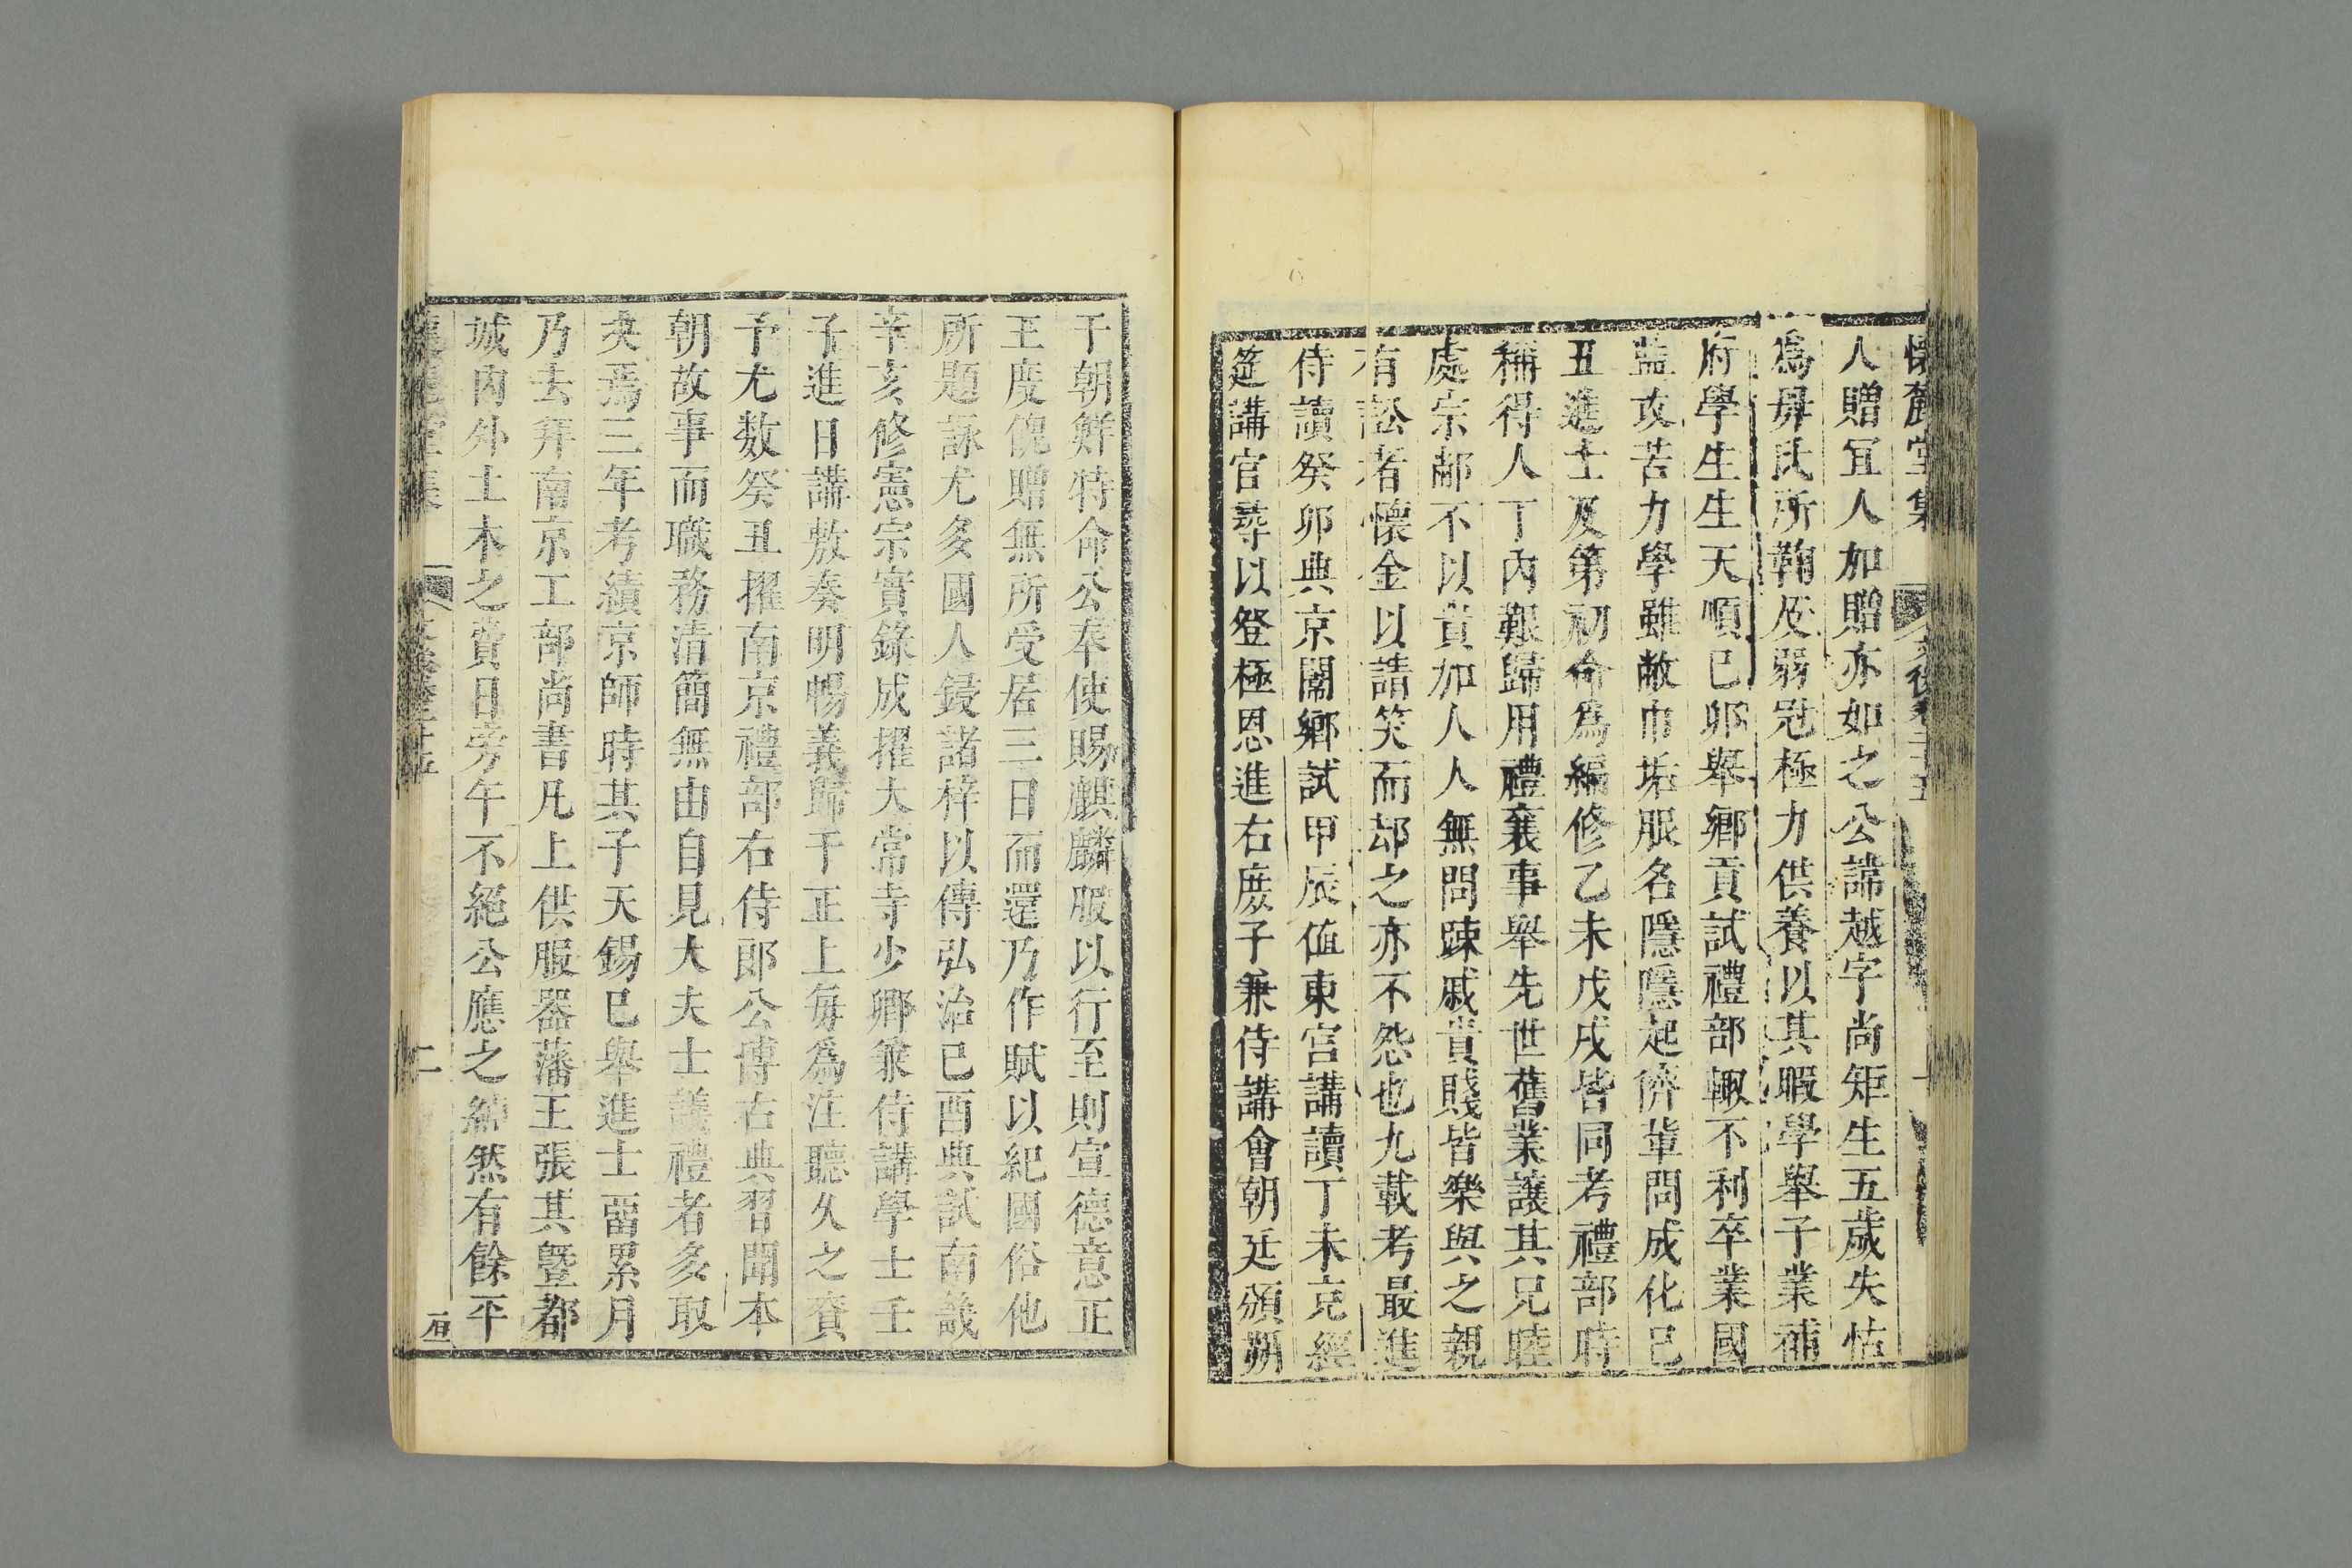 懷麓堂集 文後卷二十五
人贈冝人加贈亦如之公諱越字尚矩生五歲失怙
爲母氏所鞠及弱冠極力供養以其暇學舉子業補
府學生生天順已卯舉鄉貢試禮部輙不利卒業國
監攻苦力學雖敝巾垢服名隱隱起儕軰問成化已
丑進士及第初命爲編修乙未戊戌皆同考禮部時
稱得人丁內艱歸用禮襄事舉先世舊業讓其兄睦
處宗鄰不以貴加人人無問踈戚貴賤皆樂與之親
有訟者懷金以請笑而却之亦不怨也九載考最進
侍讀癸卯典京闈鄉試甲辰值東宮講讀丁未克經
筵講官尋以登極恩進右庶子兼侍講會朝廷頒朔
于朝鮮特命公奉使賜麒麟服以行至則宣德意正
王度餽贈無所受居三日而還乃作賦以紀國俗他
所題詠尤多國人鋟諸梓以傳弘治已酉典試南畿
辛亥修憲宗實錄成擢大常寺少卿兼侍講學士壬
子進日講敷奏明暢義歸于正上每爲注聽久之賚
予尤数癸丑擢南京禮部右侍郎公慱古典習聞本
朝故事而職務清簡無由自見大夫士議禮者多取
决焉三年考績京師時其子天錫已舉進士畱累月
乃去拜南京工部尚書凡上供服器藩王張其曁都
城內外土木之費日旁午不絕公應之綽然有餘平
二